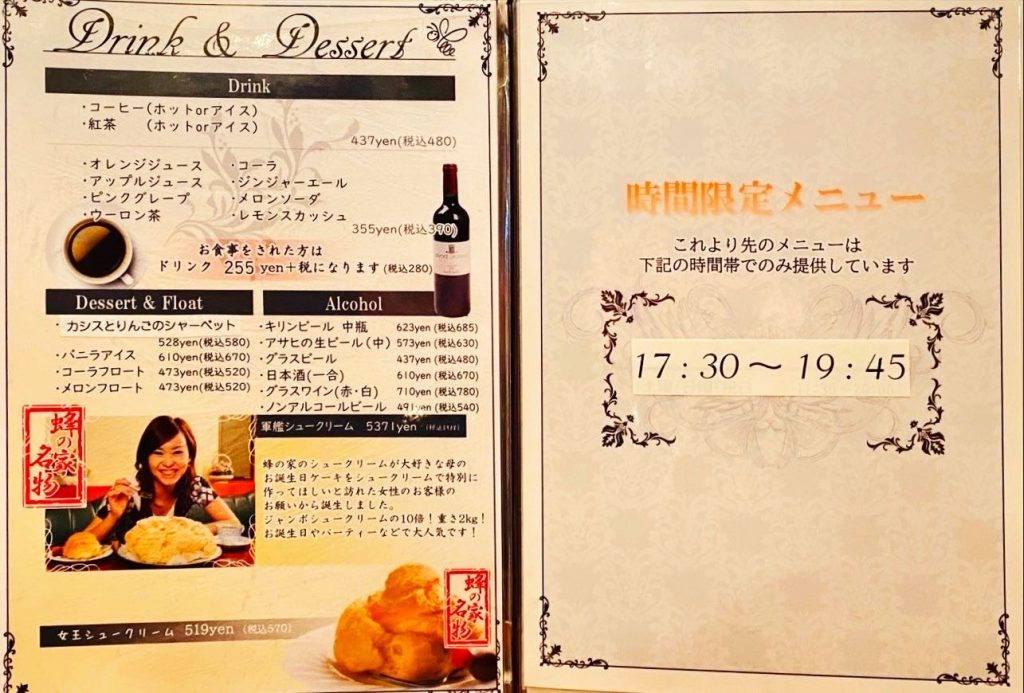 Drink & Dessert
Drink
・コーヒー(ホットorアイス)
・紅茶 (ホットorアイス)
437yen(税込480)
・オレンジジュース ・コーラ
・アップルジュース ・ジンジャーエール
・ピンクグレープ ・メロンソーダ
・ウーロン茶 ・レモンスカッシュ
355yen(税込390)
お食事をされた方は
ドリンク 255 yen+税になります(税込280)
Dessert & Float
・カシスとりんごのシャーベット
528yen(税込580)
・バニラアイス 610yen(税込670)
・コーラフロート 473yen(税込520)
・メロンフロート 473yen(税込520)
Alcohol
・キリンビール 中瓶 623yen(税込685)
・アサヒの生ビール(中) 573yen(税込630)
・グラスビール 437yen(税込480)
・日本酒(一合) 610yen(税込670)
・グラスワイン(赤・白) 710yen(税込780)
・ノンアルコールビール 491yen(税込540)
蜂の家
名物
軍艦シュークリーム 5371yen
蜂の家のシュークリームが大好きな母の
お誕生日ケーキをシュークリームで特別に
作ってほしいと訪れた女性のお客様の
お願いから誕生しました。
ジャンボシュークリームの10倍!重さ2kg!
お誕生日やパーティーなどで大人気です!
女王シュークリーム 519yen (税込570)
蜂の家
名物
時間限定メニュー
これより先のメニューは
下記の時間帯でのみ提供しています
17:30~19:45